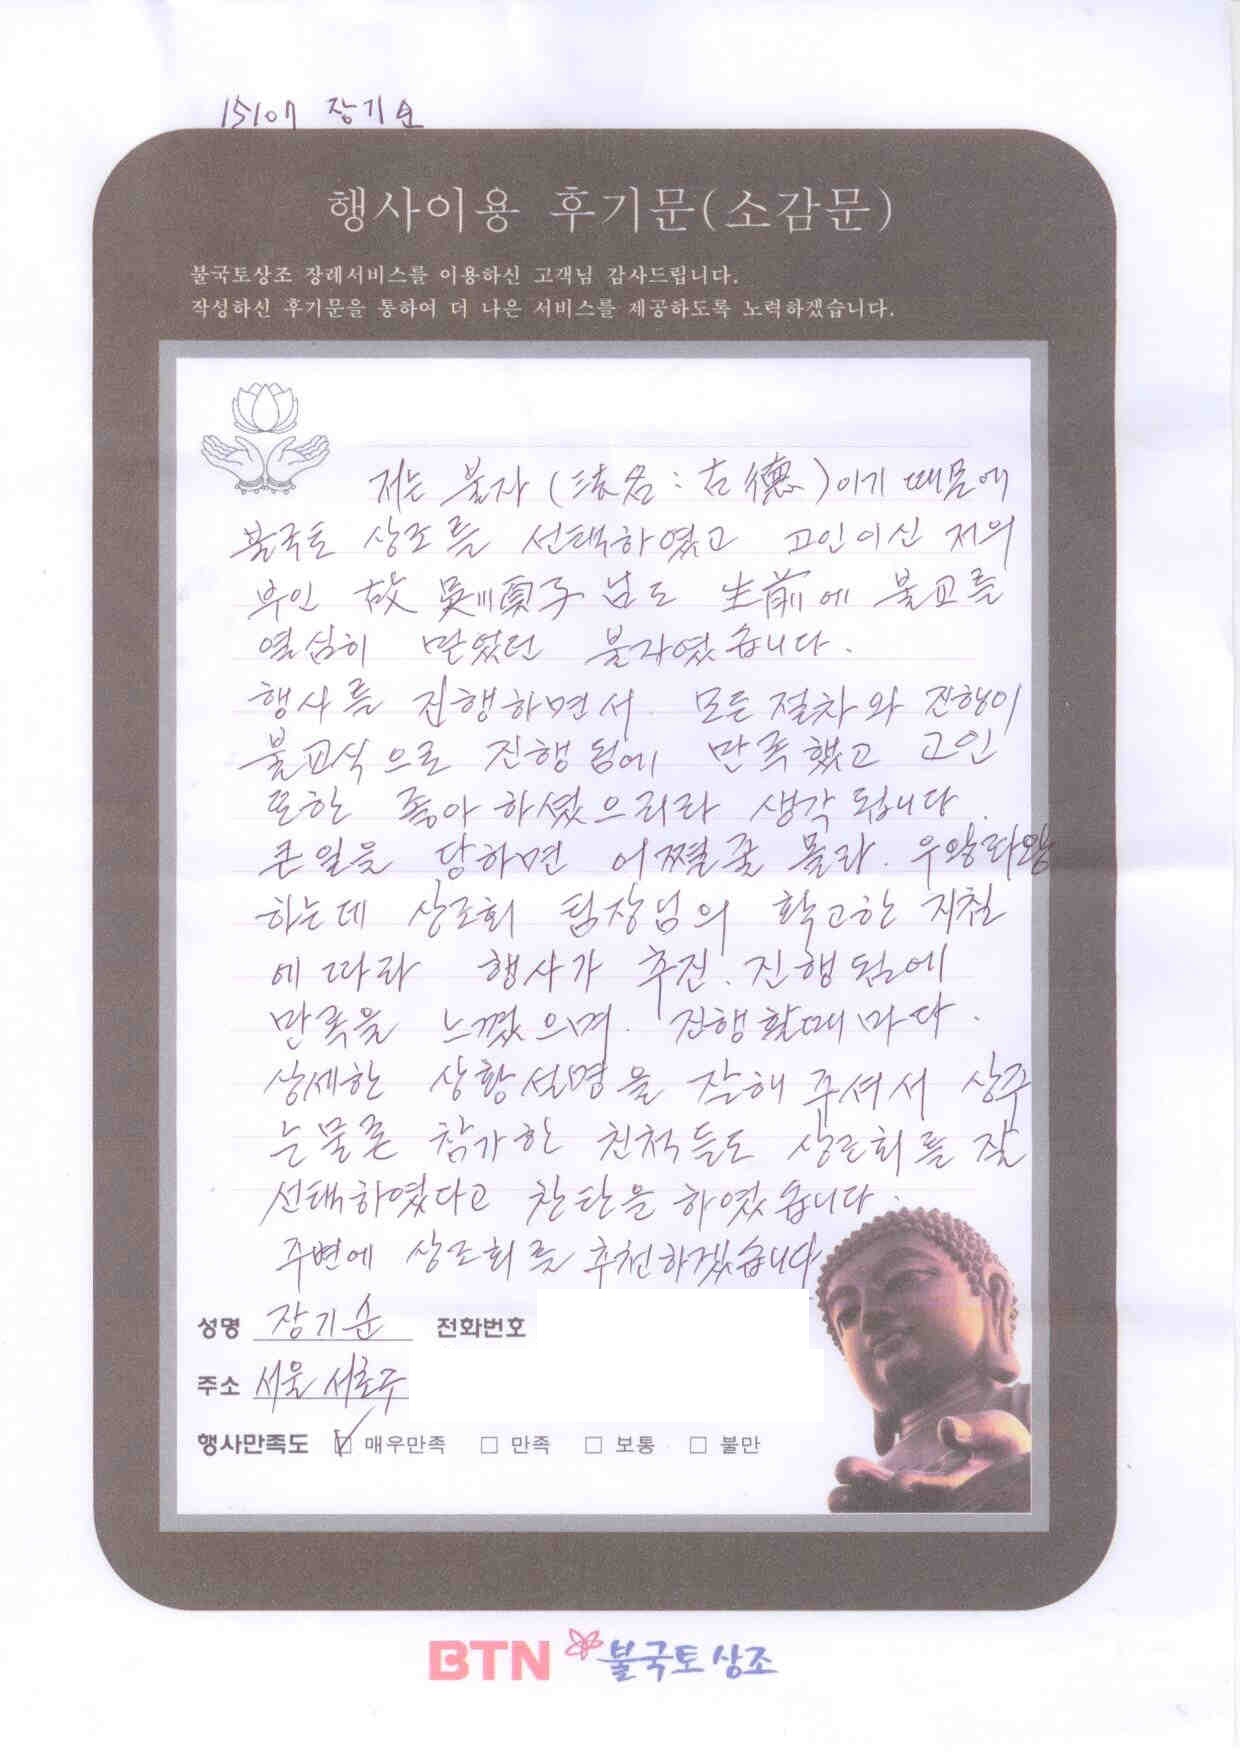 15107 장기순
행사이용 후기문(소감문)
불국토상조 장례서비스를 이용하신 고객님 감사드립니다.
작성하신 후기문을 통하여 더 나은 서비스를 제공하도록 노력하겠습니다.
저는 불자 (法名 : 古德) 이기 때문에
불국토 상조를 선택하였고 고인이신 저의
부인 故 吳順子님도 生前에 불교를
열심히 믿었던 불자였습니다.
행사를 진행하면서. 모든 절차와 진행이
불교식으로 진행됨에 만족했고 고인
또한 좋아 하셨으리라 생각됩니다.
큰일을 당하면 어쩔줄 몰라. 우왕좌왕
하는데 상조회 팀장님의 확고한 지침
에 따라 행사가 추진. 진행됨에
만족을 느꼈으며. 진행할때마다.
상세한 상황설명을 잘해 주셔서 상주
는물론 참가한 친척들도 상조회를 잘
선택하였다고 찬탄을 하였습니다.
주변에 상조회를 추천하겠습니다
성명 장기순 전화번호
주소 서울 서초구
행사만족도 ☑ 매우만족 □ 만족 □ 보통 □ 불만
BTN 불국토상조